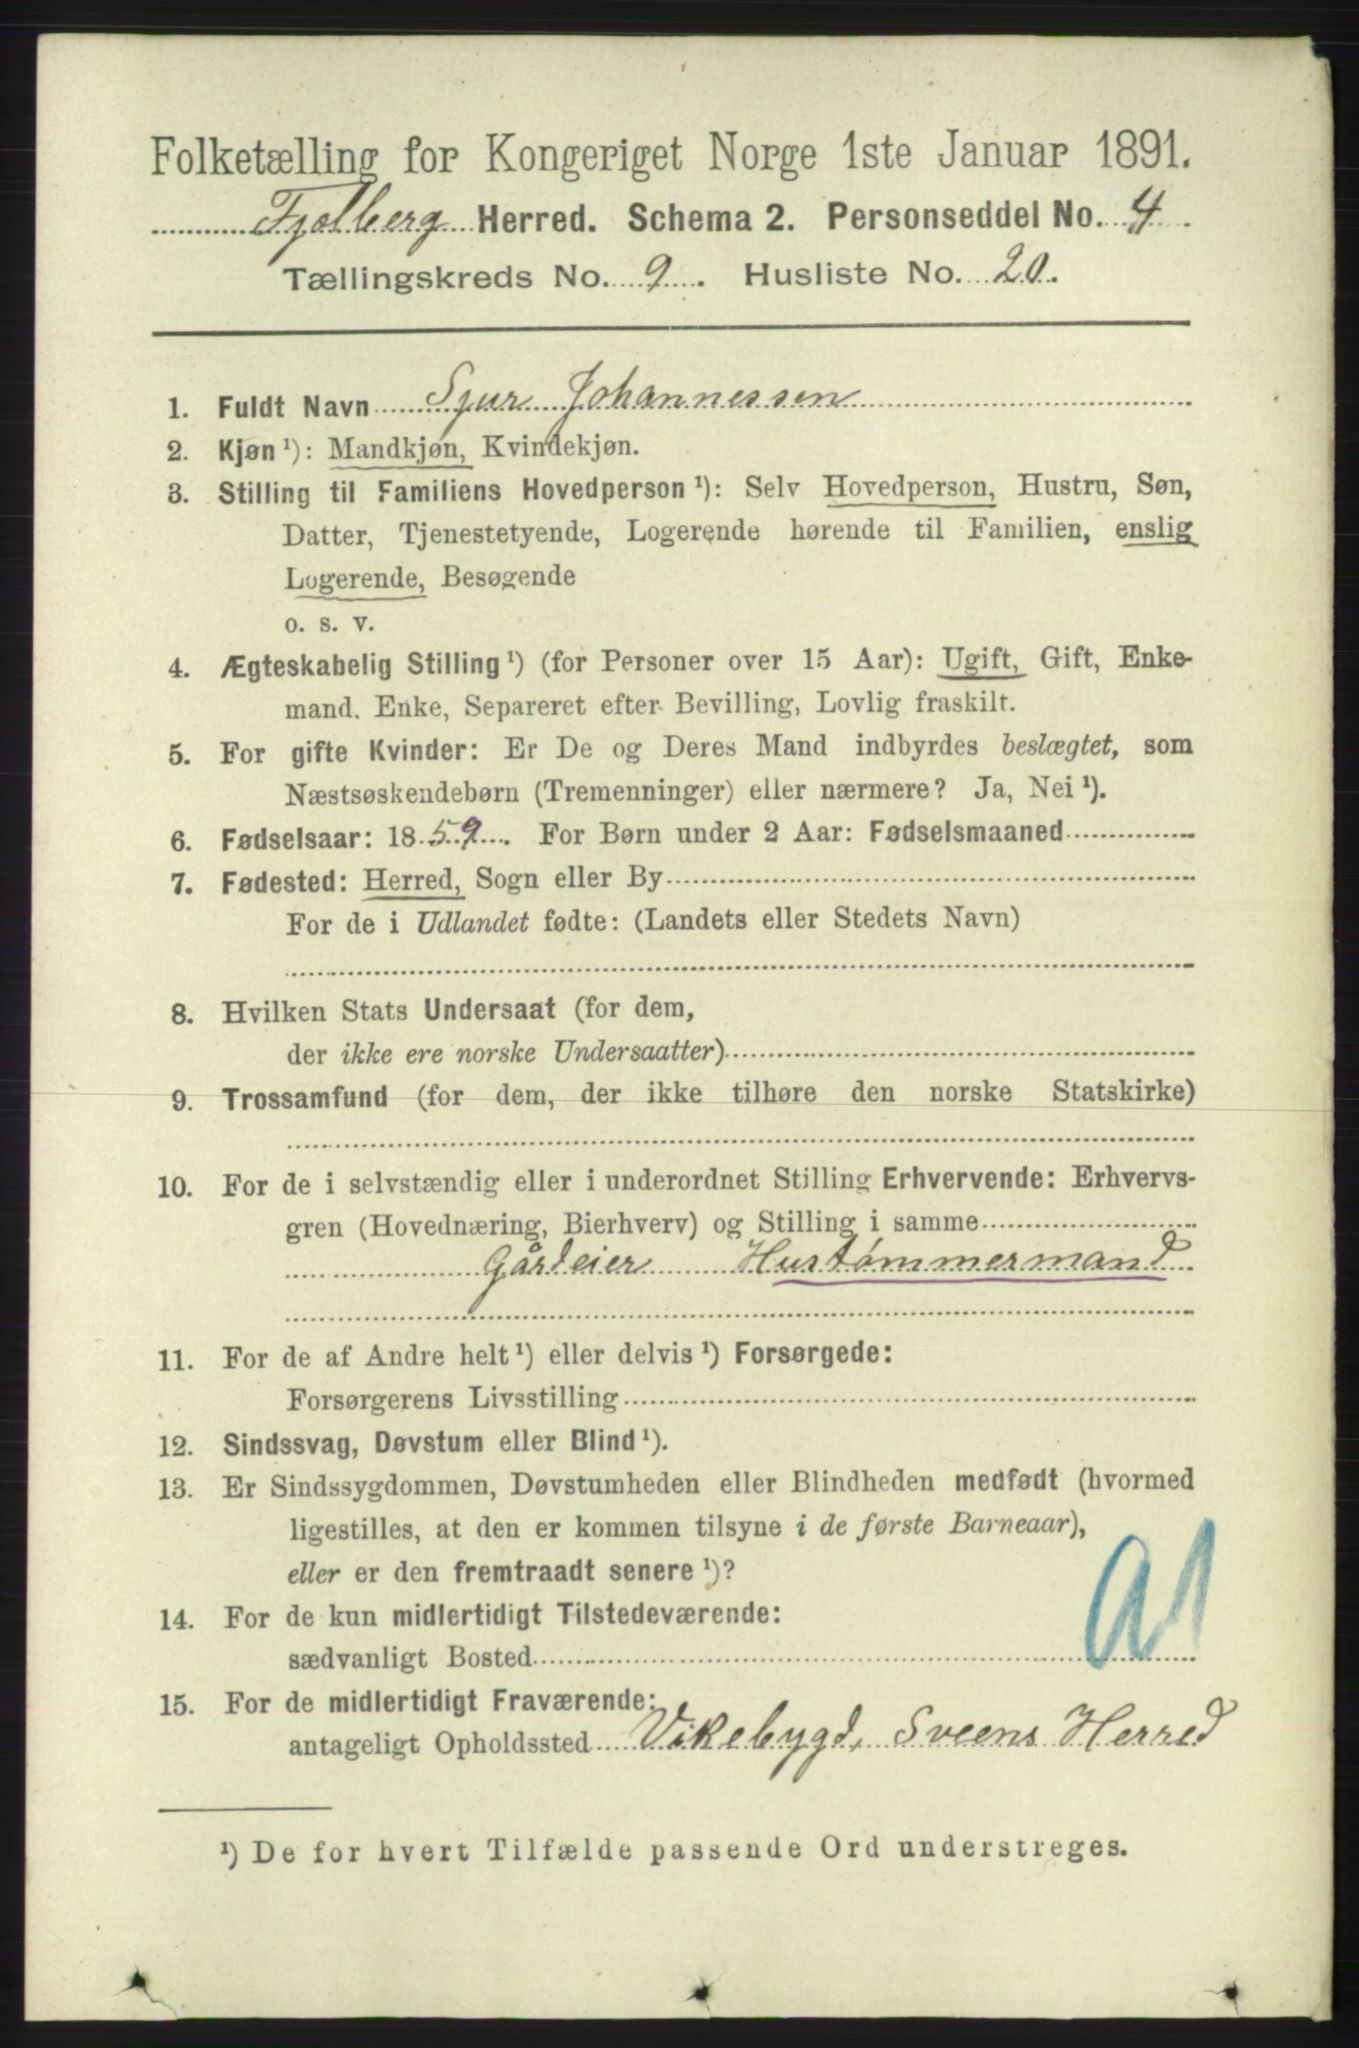 Folketælling for Kongeriget Norge 1ste Januar 1891.
Fjelberg Herred. Schema 2. Personseddel No. 4.
Tællingskreds No. 9. Husliste No. 20.
1. Fuldt Navn Sjur Johannessen
2. Kjøn¹): Mandkjøn, Kvindekjøn.
3. Stilling til Familiens Hovedperson¹): Selv Hovedperson, Hustru, Søn,
Datter, Tjenestetyende, Logerende hørende til Familien, enslig
Logerende, Besøgende
o. s. v.
4. Ægteskabelig Stilling¹) (for Personer over 15 Aar): Ugift, Gift, Enke-
mand, Enke, Separeret efter Bevilling, Lovlig fraskilt.
5. For gifte Kvinder: Er De og Deres Mand indbyrdes beslægtet, som
Næstsøskendebørn (Tremenninger) eller nærmere? Ja, Nei¹).
6. Fødselsaar: 1859. For Børn under 2 Aar: Fødselsmaaned
7. Fødested: Herred, Sogn eller By
For de i Udlandet fødte: (Landets eller Stedets Navn)
8. Hvilken Stats Undersaat (for dem,
der ikke ere norske Undersaatter)
9. Trossamfund (for dem, der ikke tilhøre den norske Statskirke)
10. For de i selvstændig eller i underordnet Stilling Erhvervende: Erhvervs-
gren (Hovednæring, Bierhverv) og Stilling i samme
Gårdeier Hustømmermand
11. For de af Andre helt¹) eller delvis¹) Forsørgede:
Forsørgerens Livsstilling
12. Sindssvag, Døvstum eller Blind¹).
13. Er Sindssygdommen, Døvstumheden eller Blindheden medfødt (hvormed
ligestilles, at den er kommen tilsyne i de første Barneaar),
eller er den fremtraadt senere¹)?
14. For de kun midlertidigt Tilstedeværende:
sædvanligt Bosted
15. For de midlertidigt Fraværende:
antageligt Opholdssted Vikebygd, Sveens Herred
¹) De for hvert Tilfælde passende Ord understreges.